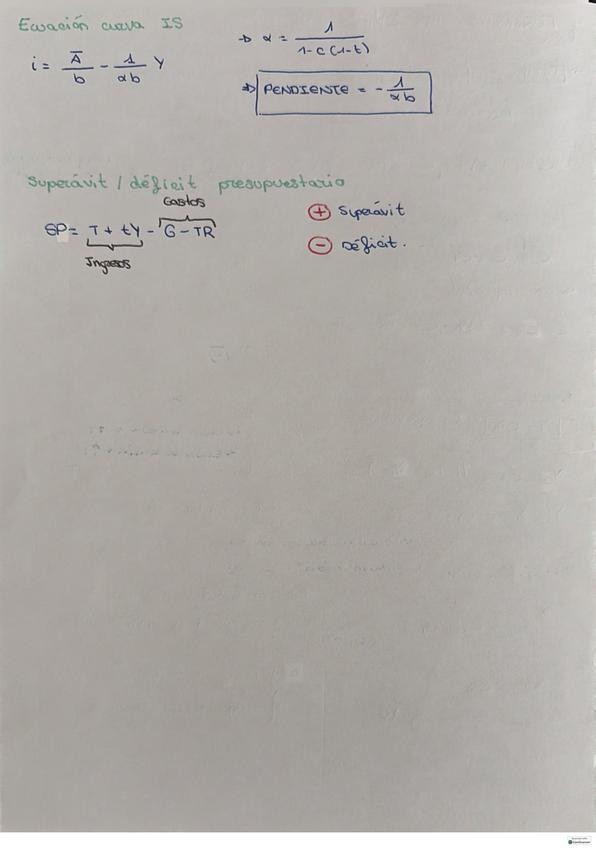 Ecuación curva IS
i = A̅/b - 1/αb Y
⇒ α = 1/1-c(1-t)
⇒ PENDIENTE = - 1/αb
Superávit / déficit presupuestario
Gastos
SP = T + tY - G - TR
Ingresos
+ Superávit
- Déficit.